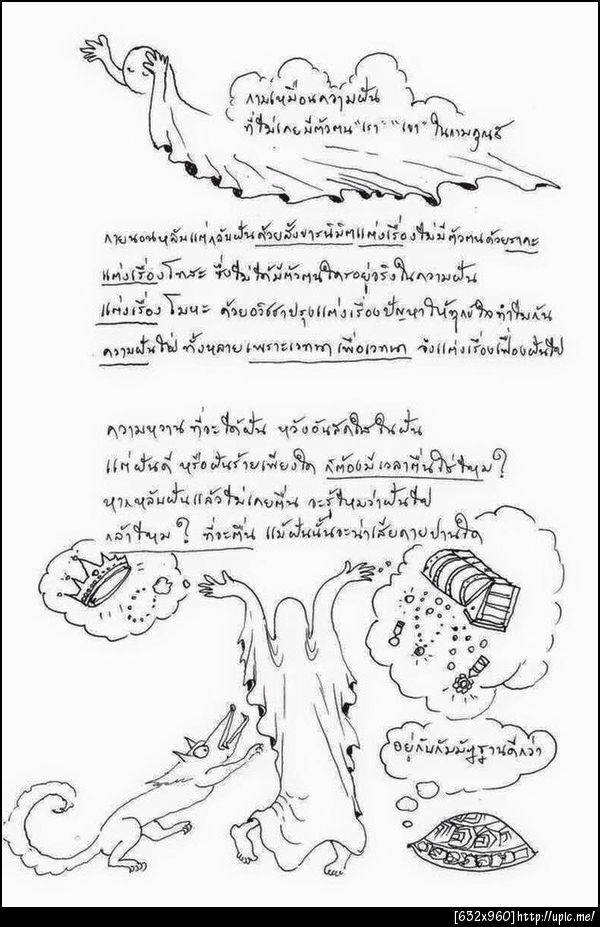 กามเหมือนความฝัน
ที่ไม่เคยมีตัวตน "เรา" "เขา" ในกามคุณ๕
กายนอนหลับแต่กลับฝันด้วยสังขารนิมิตแต่งเรื่องไม่มีตัวตนด้วยราคะ
แต่งเรื่องโทสะ ซึ่งไม่ได้มีตัวตนใครอยู่จริงในความฝัน
แต่งเรื่องโมหะ ด้วยอวิชชาปรุงแต่งเรื่องปัญหาให้ทุกข์ใจทำไมกัน
ความฝันใฝ่ ทั้งหลายเพราะเวทนา เพื่อเวทนา จึงแต่งเรื่องเฟื่องฝันไป
ความหวาน ที่จะได้ฝัน หวังอันสดใสในฝัน
แต่ฝันดี หรือฝันร้ายเพียงใด ก็ต้องมีเวลาตื่นใช่ไหม?
หากหลับฝันแล้วไม่เคยตื่น จะรู้ไหมว่าฝันไป
กล้าไหม? ที่จะตื่น แม้ฝันนั้นจะน่าเสียดายปานใด
อยู่กับกัมมัฏฐานดีกว่า
[652x960]http://upic.me/